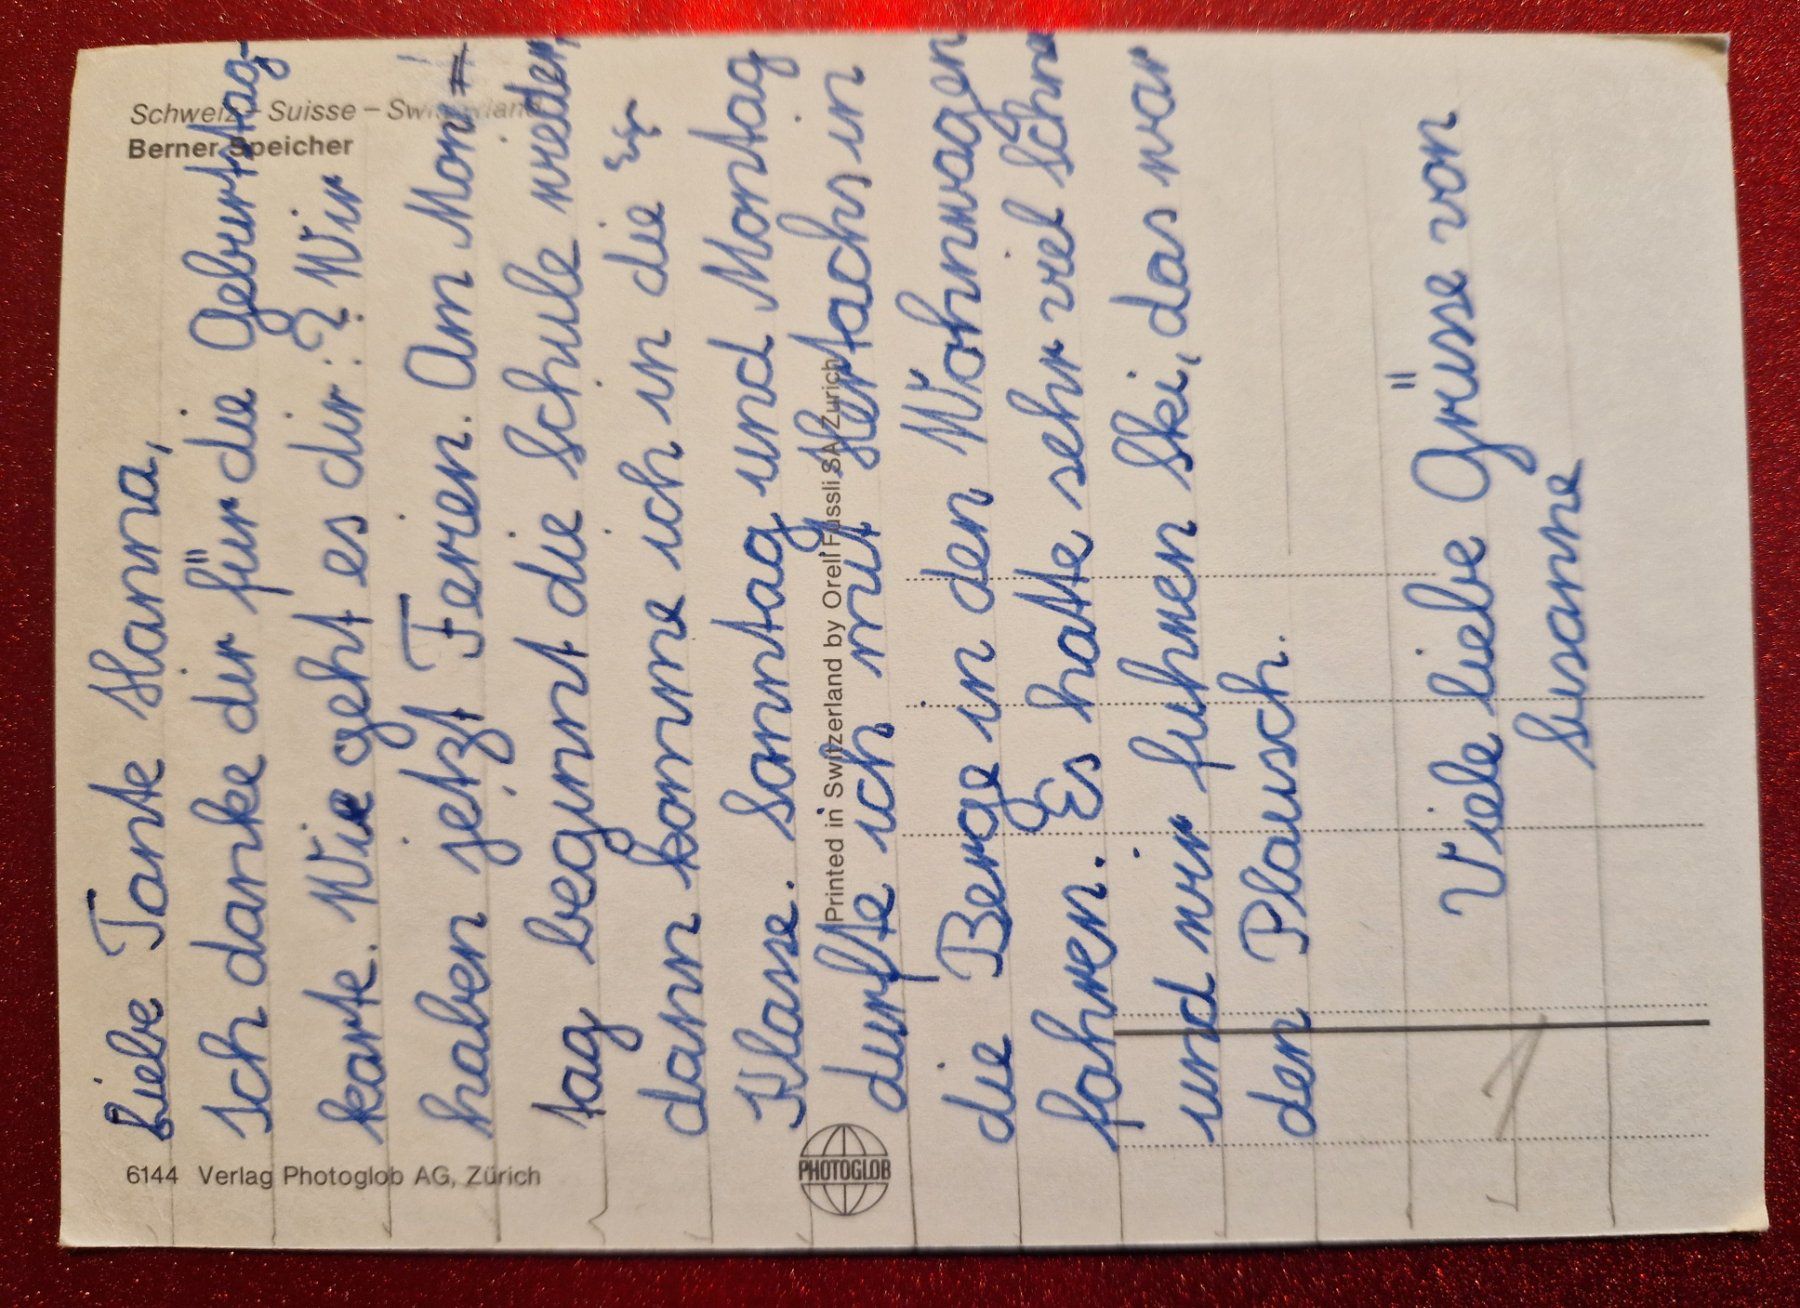 Schweiz – Suisse – Switzerland
Berner Speicher
6144 Verlag Photoglob AG, Zürich
Printed in Switzerland by Orell Füssli SA Zürich
PHOTOGLOB
Liebe Tante Hanna,
Ich danke dir für die Geburttag-
karte. Wie geht es dir:? Wir
haben jetzt Ferien. Am Mon=
tag beginnt die Schule wieder,
dann komme ich in die
Klasse. Sonntag und Montag
durfte ich mit Hertachs in
die Berge in den Wohnwagen
fahren. Es hatte sehr viel Schne
und wir fuhren Ski, das war
den Plausch.
Viele liebe Grüsse von
Susanne